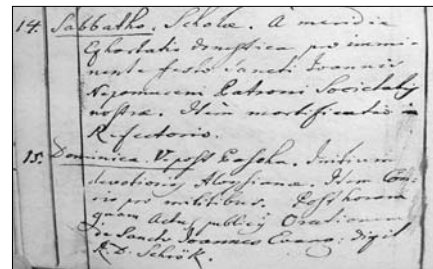 14. Sabbatho. Scholæ. A meridie
Exhortatio domestica pro immi-
nente festo Sancti Joannis
Nepomuceni Patroni Societatis
nostræ. Item mortificatio in
Refectorio.
15. Dominica V. post Pascha. Initium
devotionis Aloysianæ. Item
pro militibus. Post horam
quam Actu publicus Orationem
de Sancto Joannes Evang: dixit
R. D. Schrök.